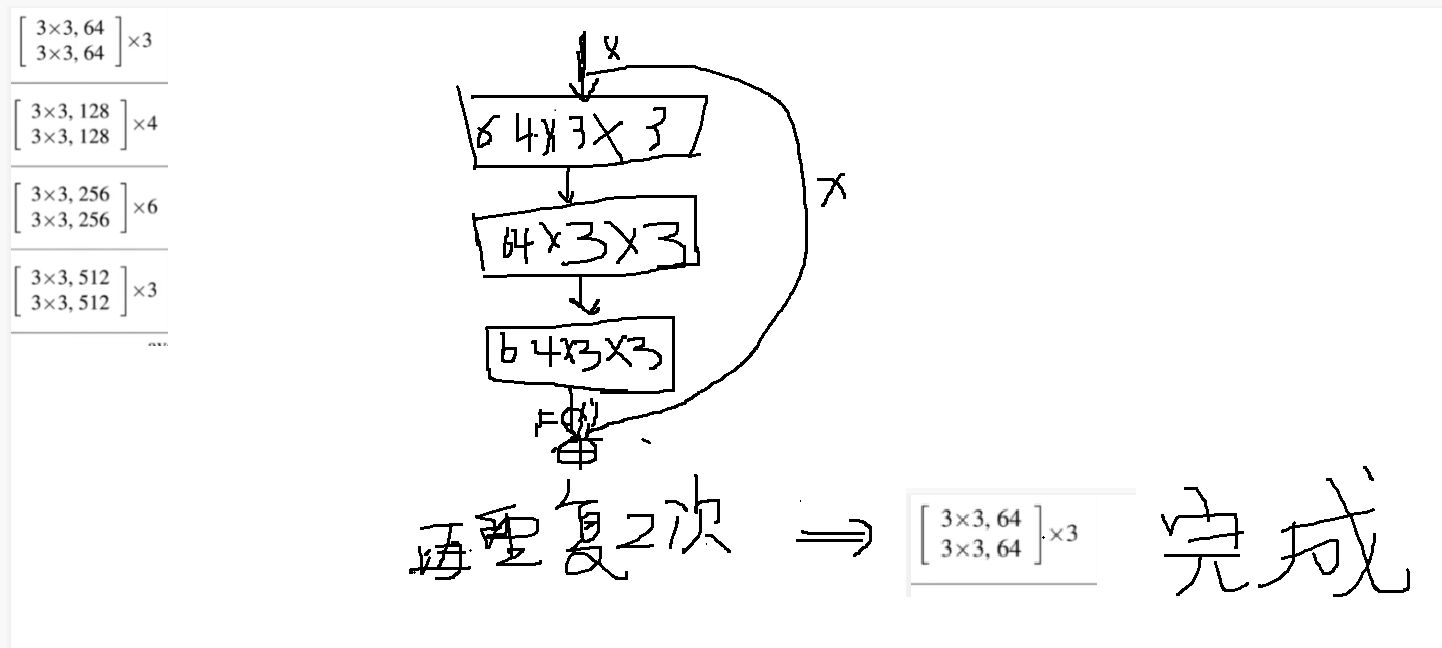 [3×3, 64
3×3, 64] ×3
[3×3, 128
3×3, 128] ×4
[3×3, 256
3×3, 256] ×6
[3×3, 512
3×3, 512] ×3
x
64×3×3
x
64×3×3
64×3×3
再重复2次 ⇒ [3×3, 64
3×3, 64] ×3 完成